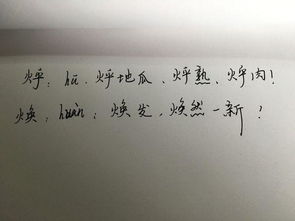 烀：hū、烀地瓜、烀熟、烀肉！
焕：huàn：焕发、焕然一新！